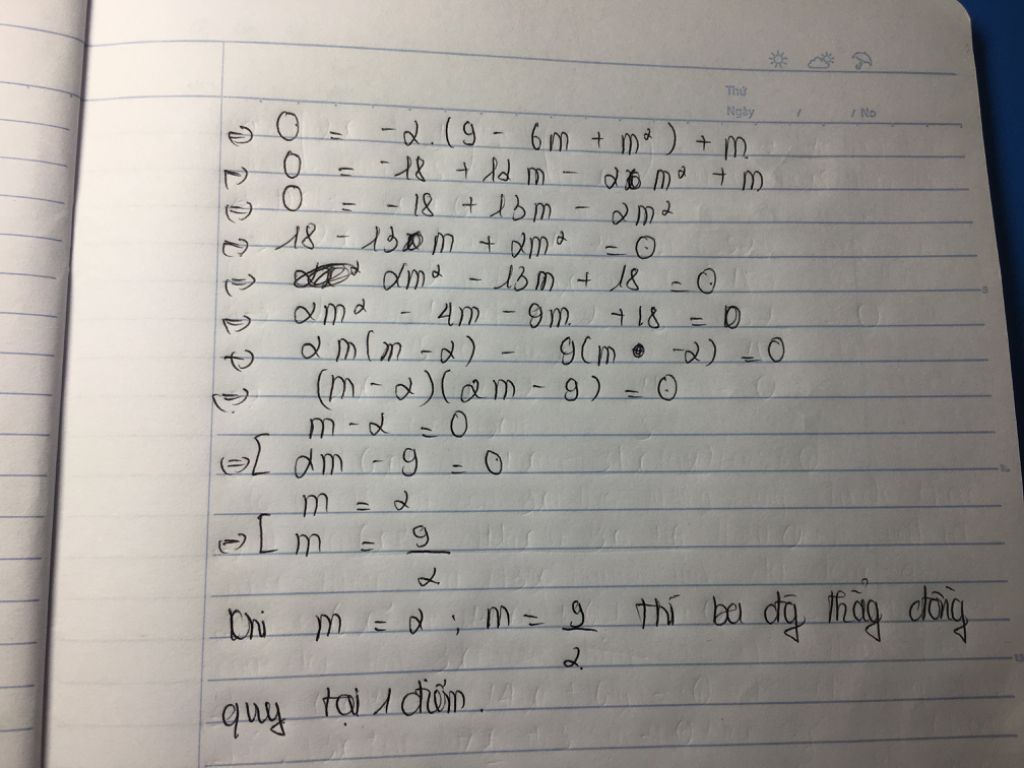 Thứ
Ngày / / No
⇔ 0 = -2.(9 - 6m + m²) + m
⇔ 0 = -18 + 12m - 2m² + m
⇔ 0 = -18 + 13m - 2m²
⇔ 18 - 13m + 2m² = 0
⇔ 2m² - 13m + 18 = 0
⇔ 2m² - 4m - 9m + 18 = 0
⇔ 2m(m - 2) - 9(m - 2) = 0
⇔ (m - 2)(2m - 9) = 0
m - 2 = 0
⇔ [ 2m - 9 = 0
m = 2
⇔ [ m = 9/2
Khi m = 2 ; m = 9/2 thì ba đg thẳg đồng
quy tại 1 điểm.